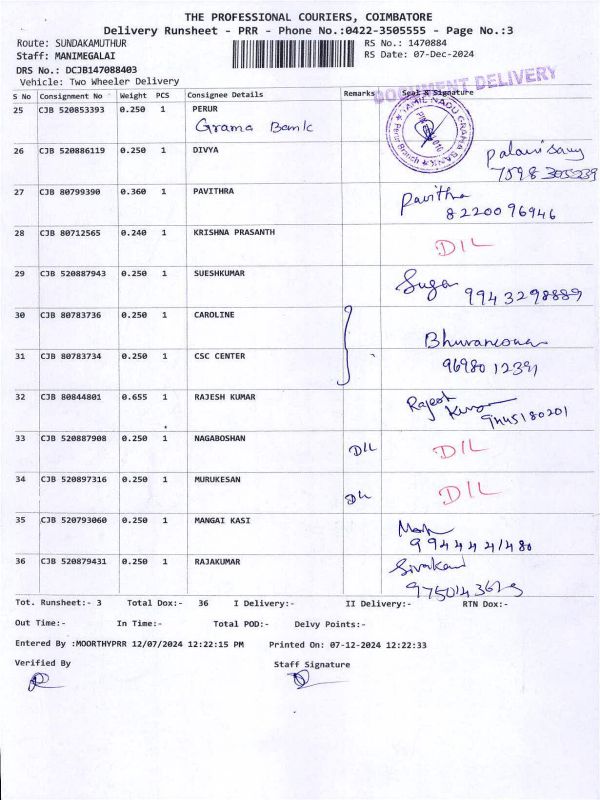 THE PROFESSIONAL COURIERS, COIMBATORE
Delivery Runsheet - PRR - Phone No.:0422-3505555 - Page No.:3
Route: SUNDAKAMUTHUR RS No.: 1470884
Staff: MANIMEGALAI RS Date: 07-Dec-2024
DRS No.: DCJB147088403
Vehicle: Two Wheeler Delivery
DOCUMENT DELIVERY
S No Consignment No Weight PCS Consignee Details Remarks Seal & Signature
25 CJB 520853393 0.250 1 PERUR
Grama Bank
TAMIL NADU GRAMA BANK
Perur Branch
26 CJB 520886119 0.250 1 DIVYA
palanisamy
7598 305239
27 CJB 80799390 0.360 1 PAVITHRA
Pavithra
8220096946
28 CJB 80712565 0.240 1 KRISHNA PRASANTH
DIL
29 CJB 520887943 0.250 1 SUESHKUMAR
Suga 9943298889
30 CJB 80783736 0.250 1 CAROLINE
31 CJB 80783734 0.250 1 CSC CENTER
32 CJB 80844801 0.655 1 RAJESH KUMAR
Rajesh
33 CJB 520887908 0.250 1 NAGABOSHAN
DIL DIL
34 CJB 520897316 0.250 1 MURUKESAN
DIL DIL
35 CJB 520793060 0.250 1 MANGAI KASI
36 CJB 520879431 0.250 1 RAJAKUMAR
Tot. Runsheet:- 3 Total Dox:- 36 I Delivery:- II Delivery:- RTN Dox:-
Out Time:- In Time:- Total POD:- Delvy Points:-
Entered By :MOORTHYPRR 12/07/2024 12:22:15 PM Printed On: 07-12-2024 12:22:33
Verified By Staff Signature